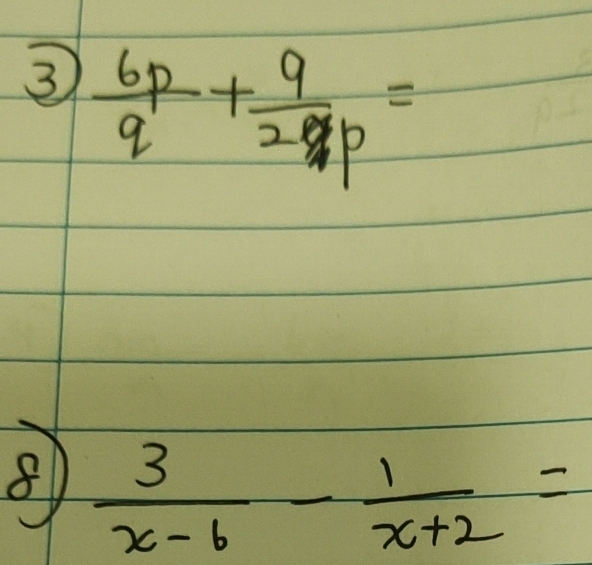 3) 6p/q + q/2p =
8) 3/(x-6) - 1/(x+2) =